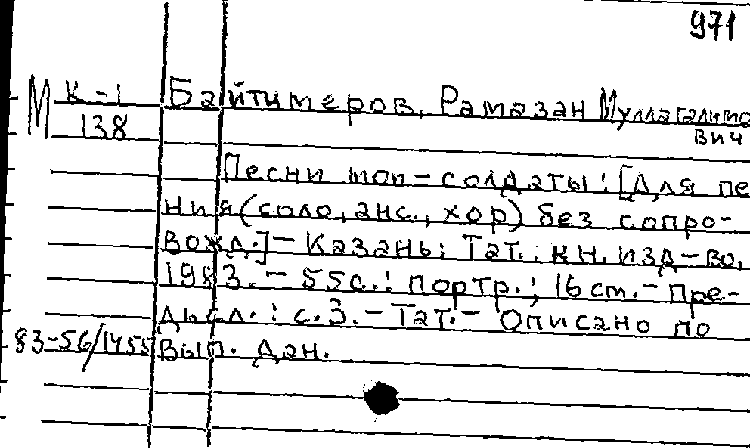 971
М К-1 Байтимеров, Рамазан Муллагалимо
138 вич
Песни топ-солдаты: [Для пе
ния (соло, анс., хор) без сопро-
вожд.] - Казань: Тат. кн. изд-во,
1983. - 55с.: портр.; 16 cm. - Пре-
дисл.: с.3. - Тат. - Описано по
83-56/1455 вып. дан.